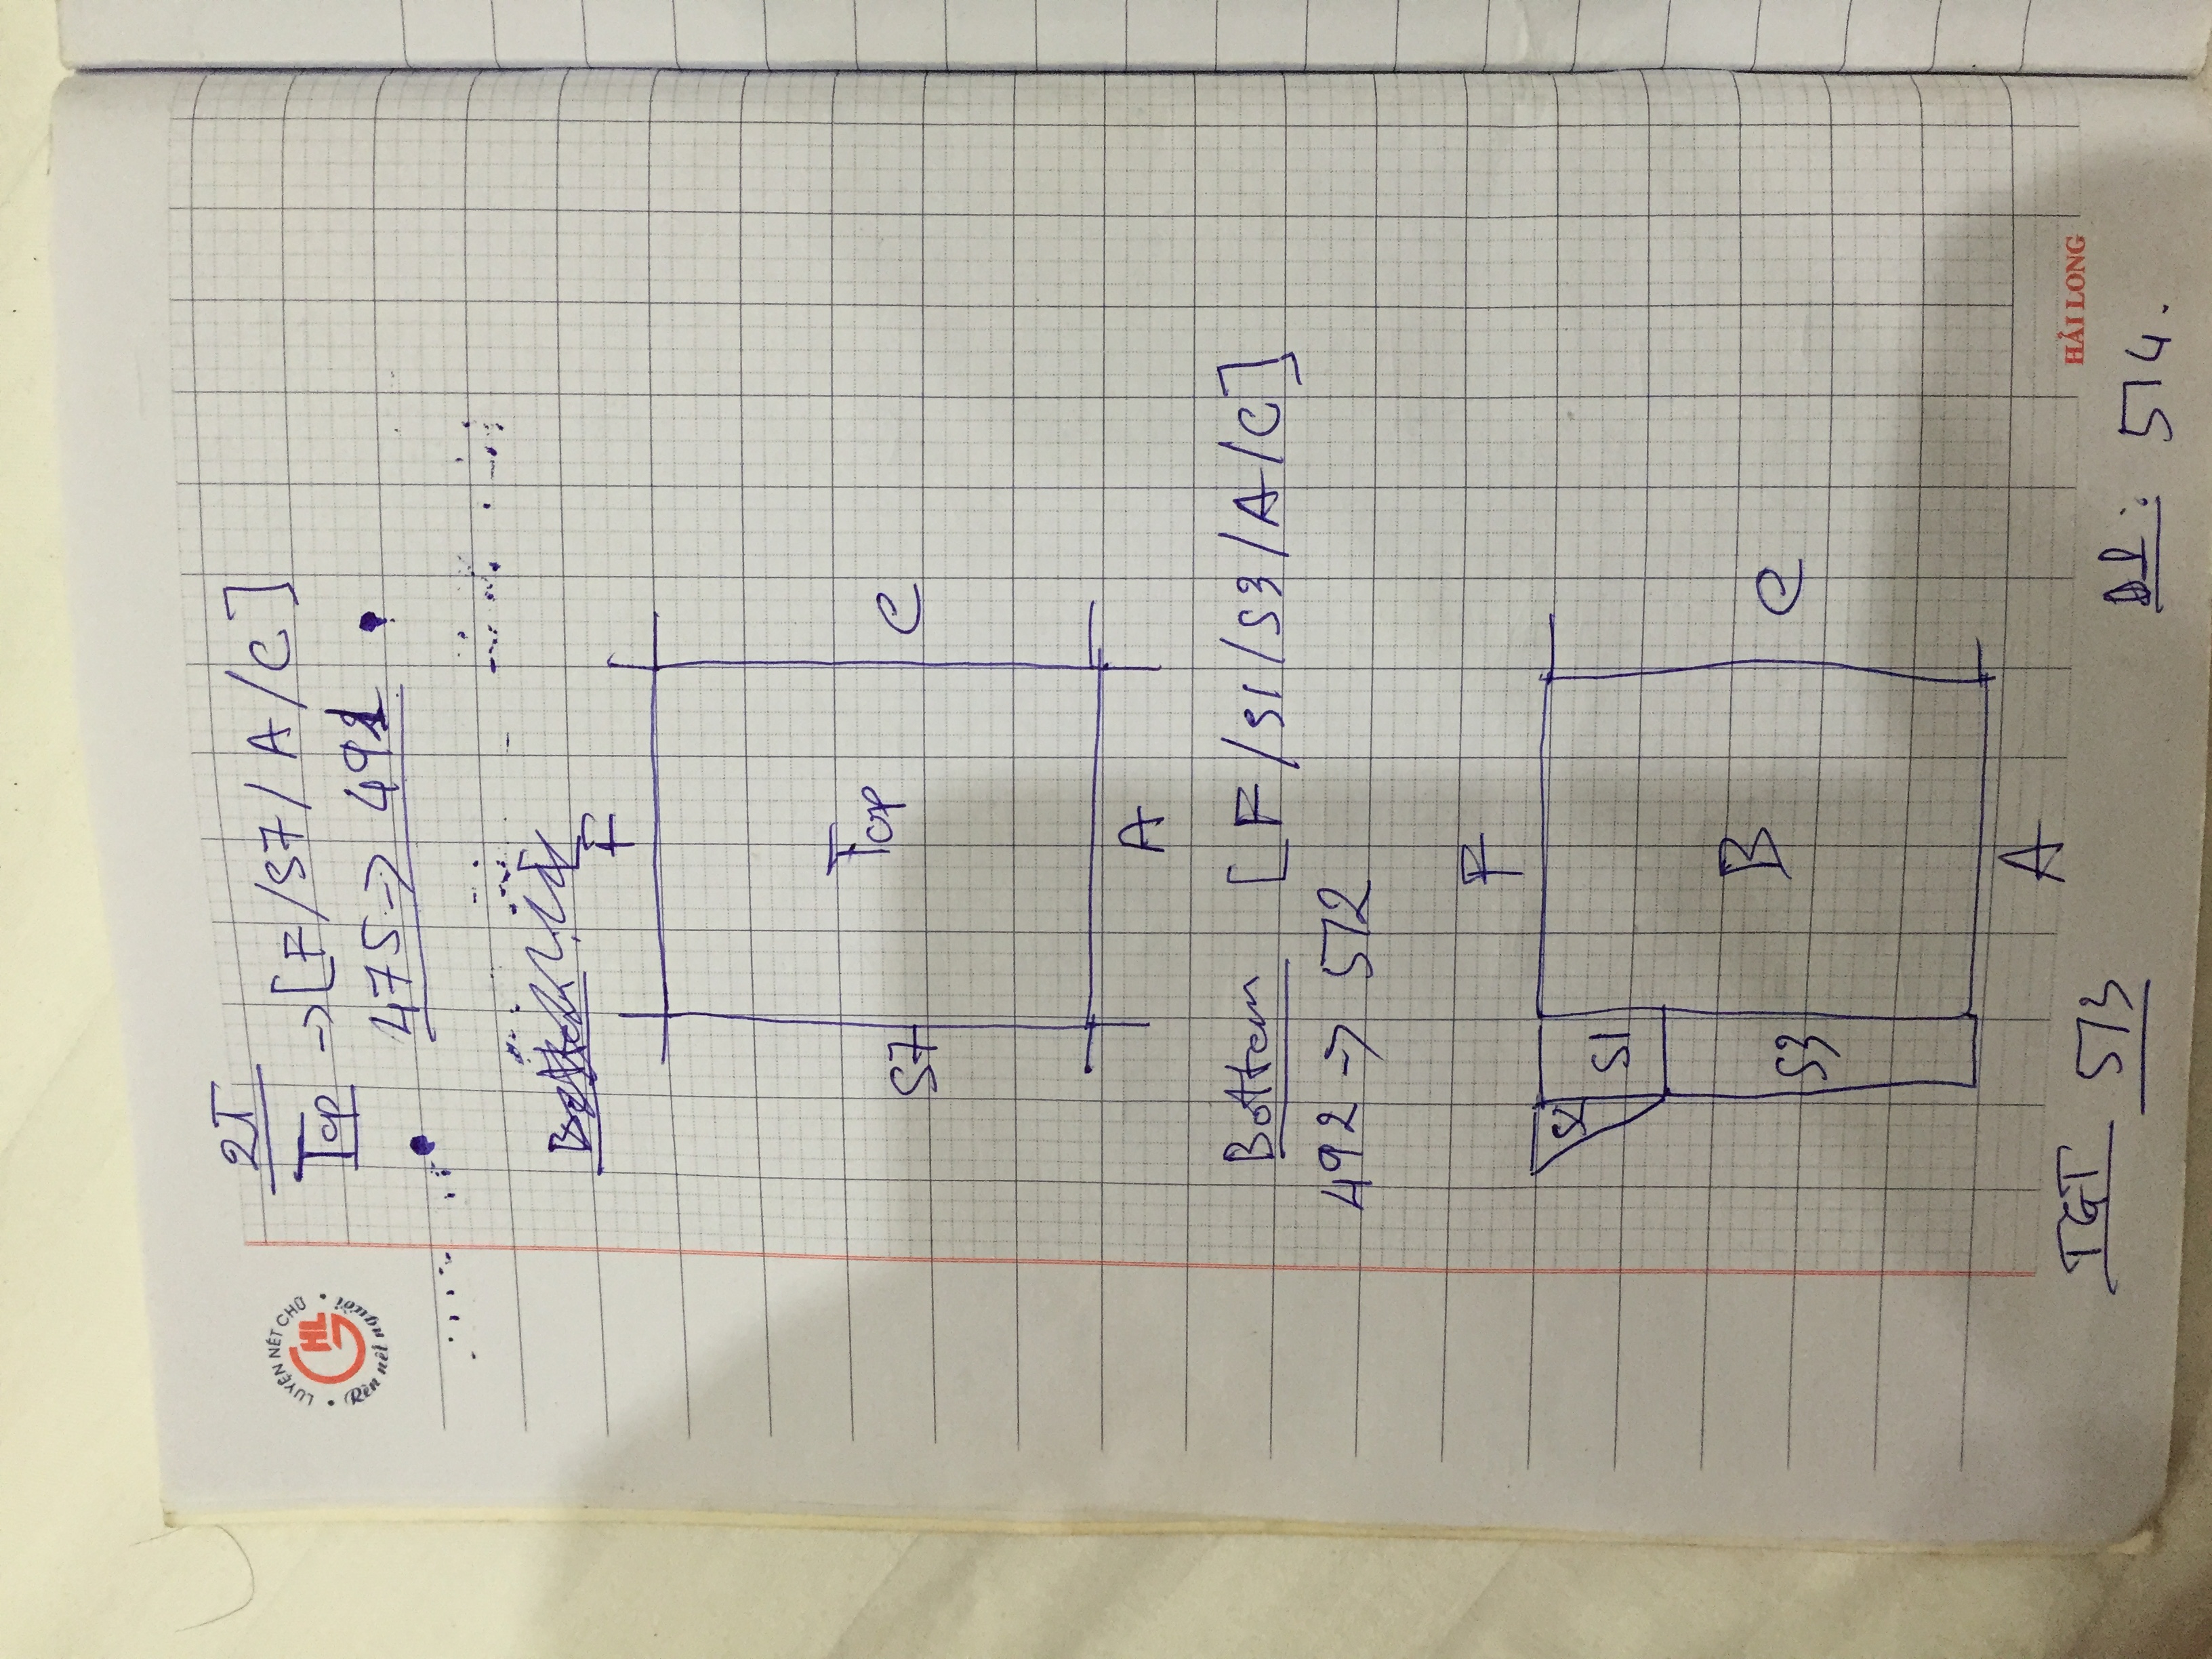 LUYỆN NÉT CHỮ
HL
Rèn nết người
2T
Top -> [F/S7/A/C]
475 -> 491
F
Top
S7
C
A
Bottom [F/S1/S3/A/C]
492 -> 512
F
S2
S1
B
S3
C
A
HẢI LONG
TGT 513
514.